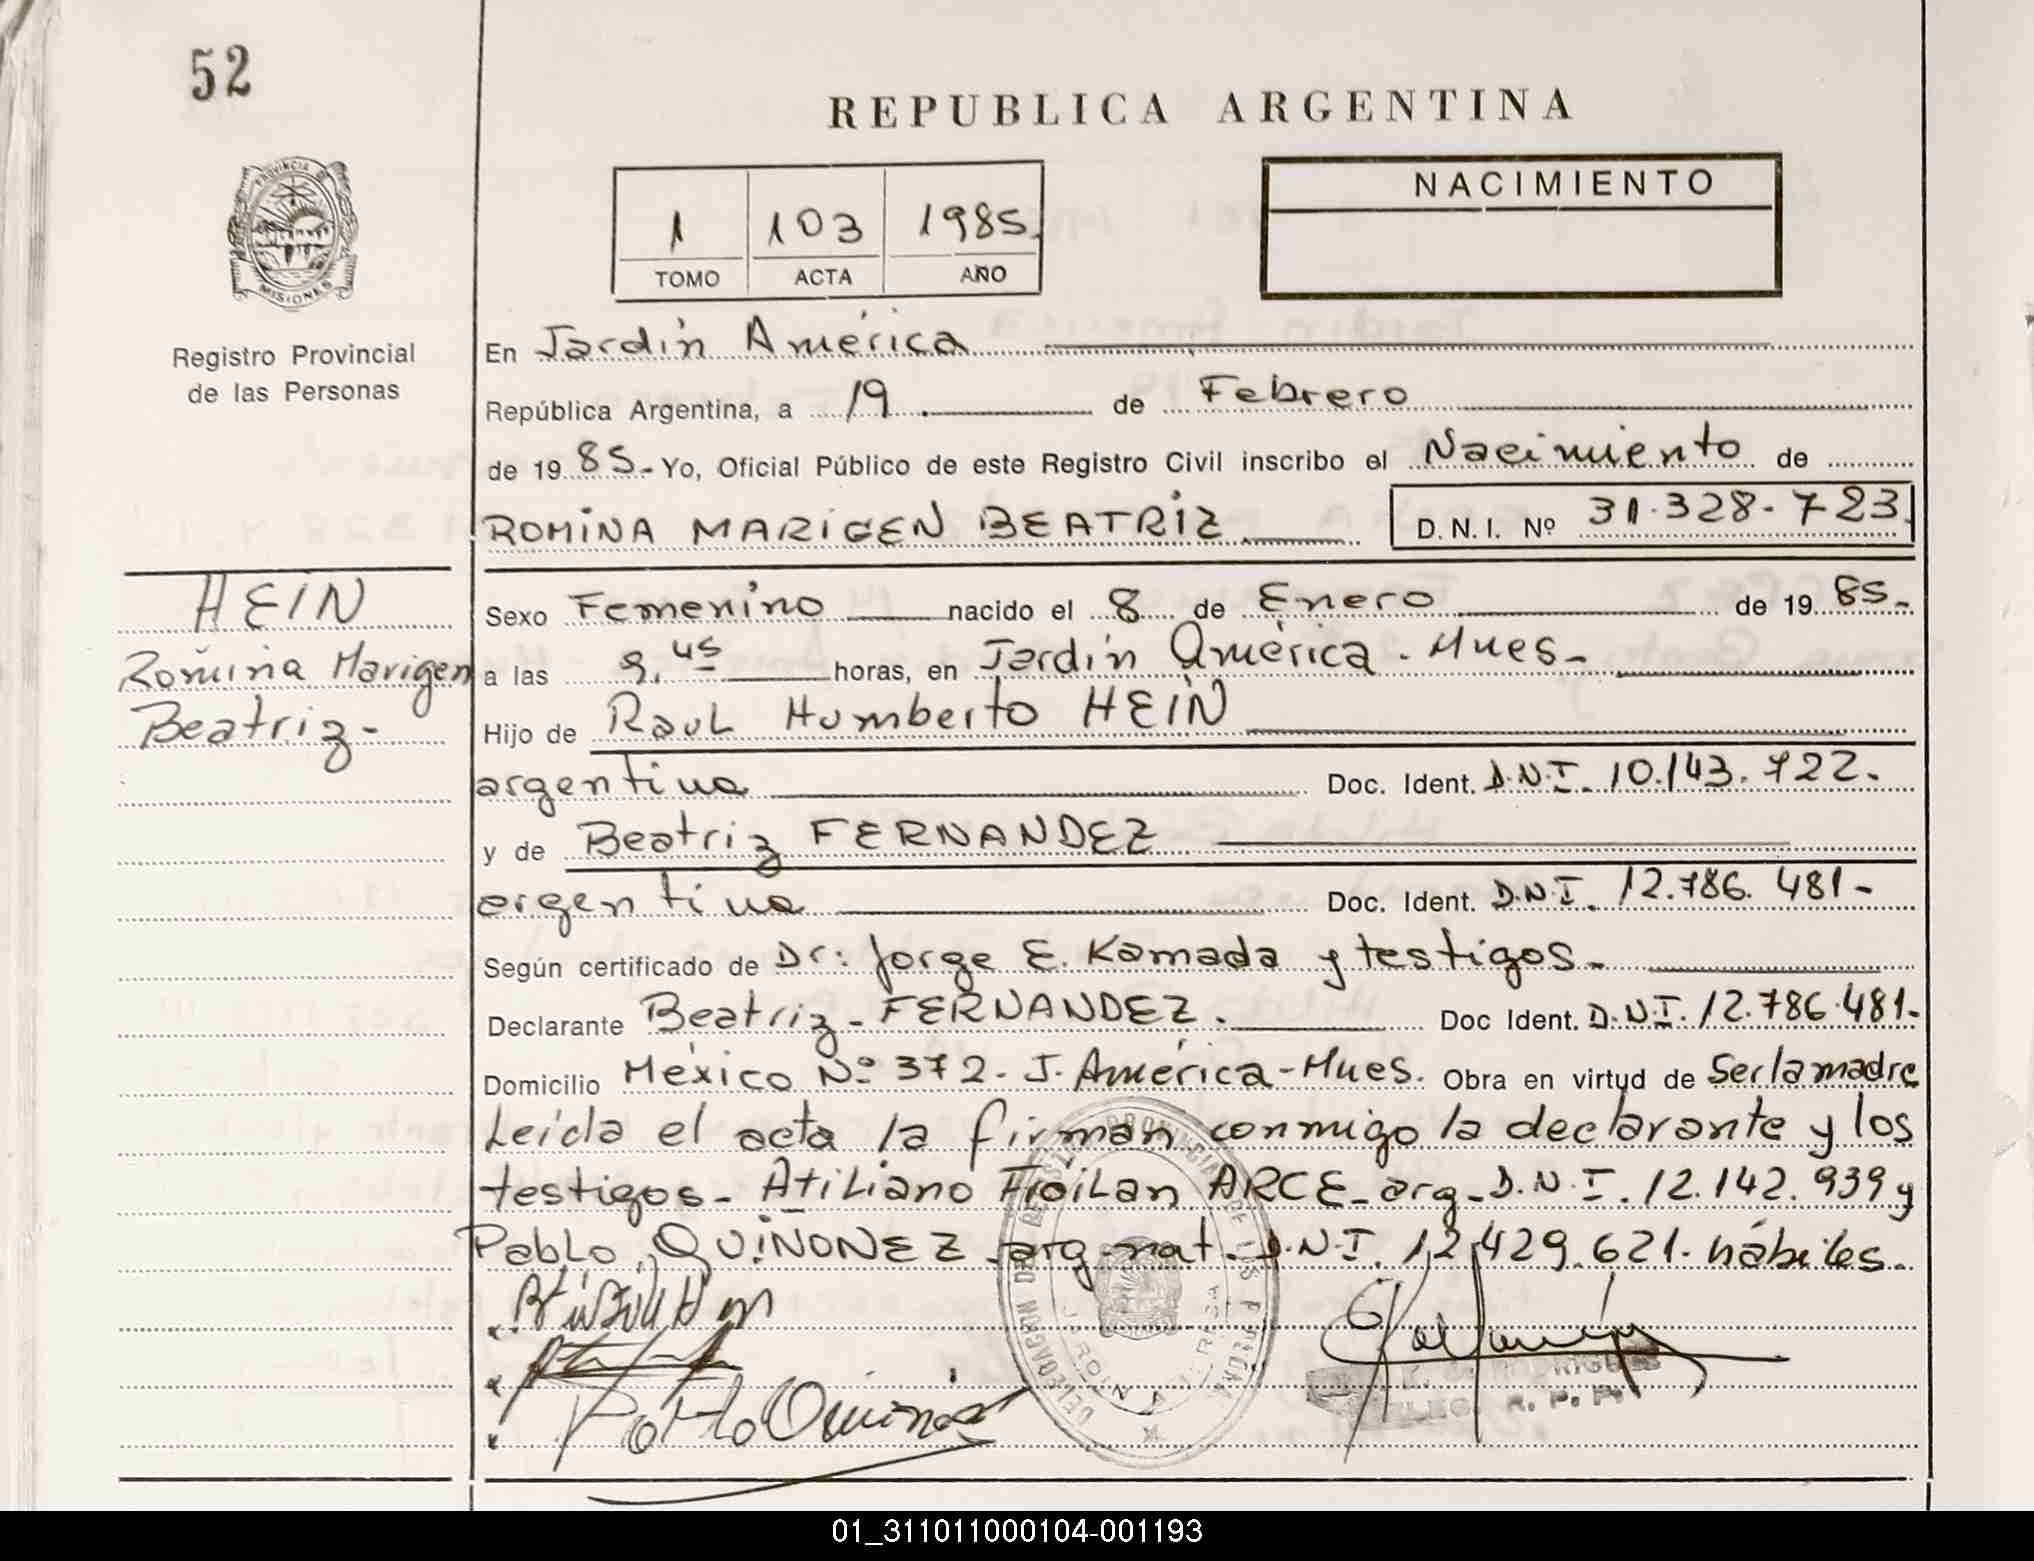 52
REPUBLICA ARGENTINA
PROVINCIA D
MISIONES
1 103 1985.
TOMO ACTA AÑO
NACIMIENTO
Registro Provincial
de las Personas
En Jardín América
República Argentina, a 19 de Febrero
de 1985.- Yo, Oficial Público de este Registro Civil inscribo el Nacimiento de
ROMINA MARIGEN BEATRIZ D.N.I. Nº 31.328.723.
HEIN
Romina Marigen
Beatriz-
Sexo Femenino nacido el 8 de Enero de 1985-
a las 9,45 horas, en Jardín América. Mnes-
Hijo de Raul Humberto HEIN
argentina Doc. Ident. D.N.I. 10.143.722.
y de Beatriz FERNANDEZ
argentina Doc. Ident. D.N.I. 12.786.481-
Según certificado de Dr: Jorge E. Kamada y testigos-
Declarante Beatriz- FERNANDEZ. Doc Ident. D.N.I. 12.786.481-
Domicilio México Nº 372- J. América-Mnes. Obra en virtud de Ser la madre
Leída el acta la firman conmigo la declarante y los
testigos- Atiliano Froilan ARCE- arg- D.N.I. 12.142.939 y
Pablo QUIÑONEZ- arg-nat- D.N.I. 12.429.621- hábiles-
Pablo Quiñonez
R. P. P.
01_311011000104-001193